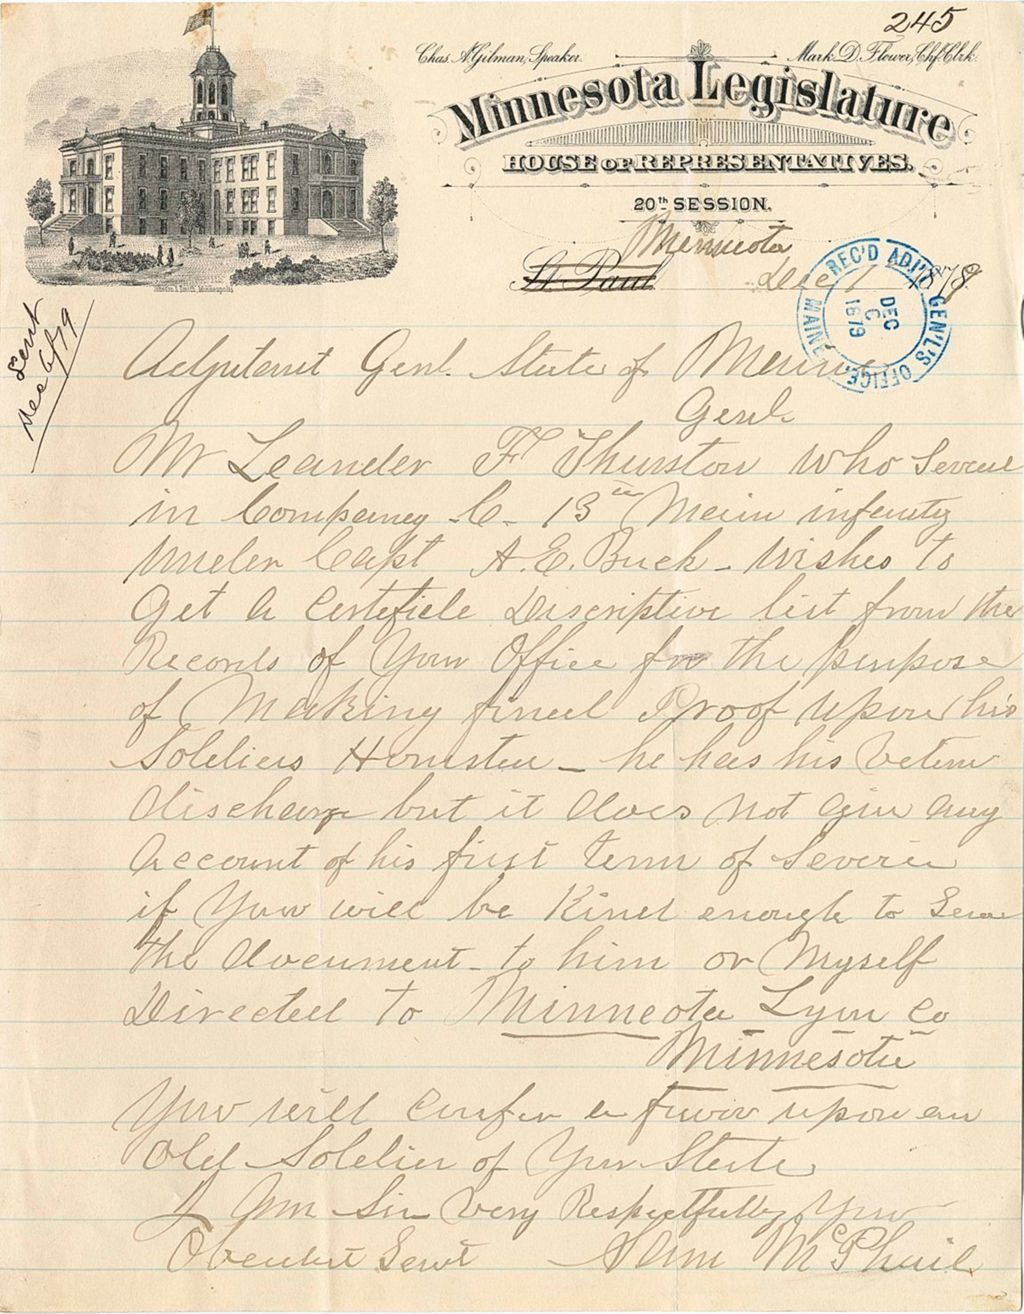 245
Chas. A. Gilman, Speaker.
Mark D. Flower, Chf. Clrk.
Minnesota Legislature
HOUSE OF REPRESENTATIVES.
20th SESSION.
Minneota
St. Paul
Dec 1 1879
REC'D ADJ'T GEN'L'S OFFICE, MAINE
DEC
6
1879
Sent
Dec 6/79
Adjutant Genl. State of Maine
Genl.
Mr Leander F Thurston who served
in Company -C- 13th Main infenty
under Capt A. E. Buck - wishes to
Get a Certificle Discriptive list from the
Records of Your Office for the purpose
of Making final Proof upon his
Soldiers Homsted - he has his Vetern
discharge but it does not give any
account of his first term of Service
if You will be Kind enough to Send
the document - to him or Myself
Directed to Minneota Lyon Co
Minnesota
You will confer a favor upon an
Old Soldier of Your State
I Am Sir Very Respectfully Your
Obendent Servt Sam McPhail